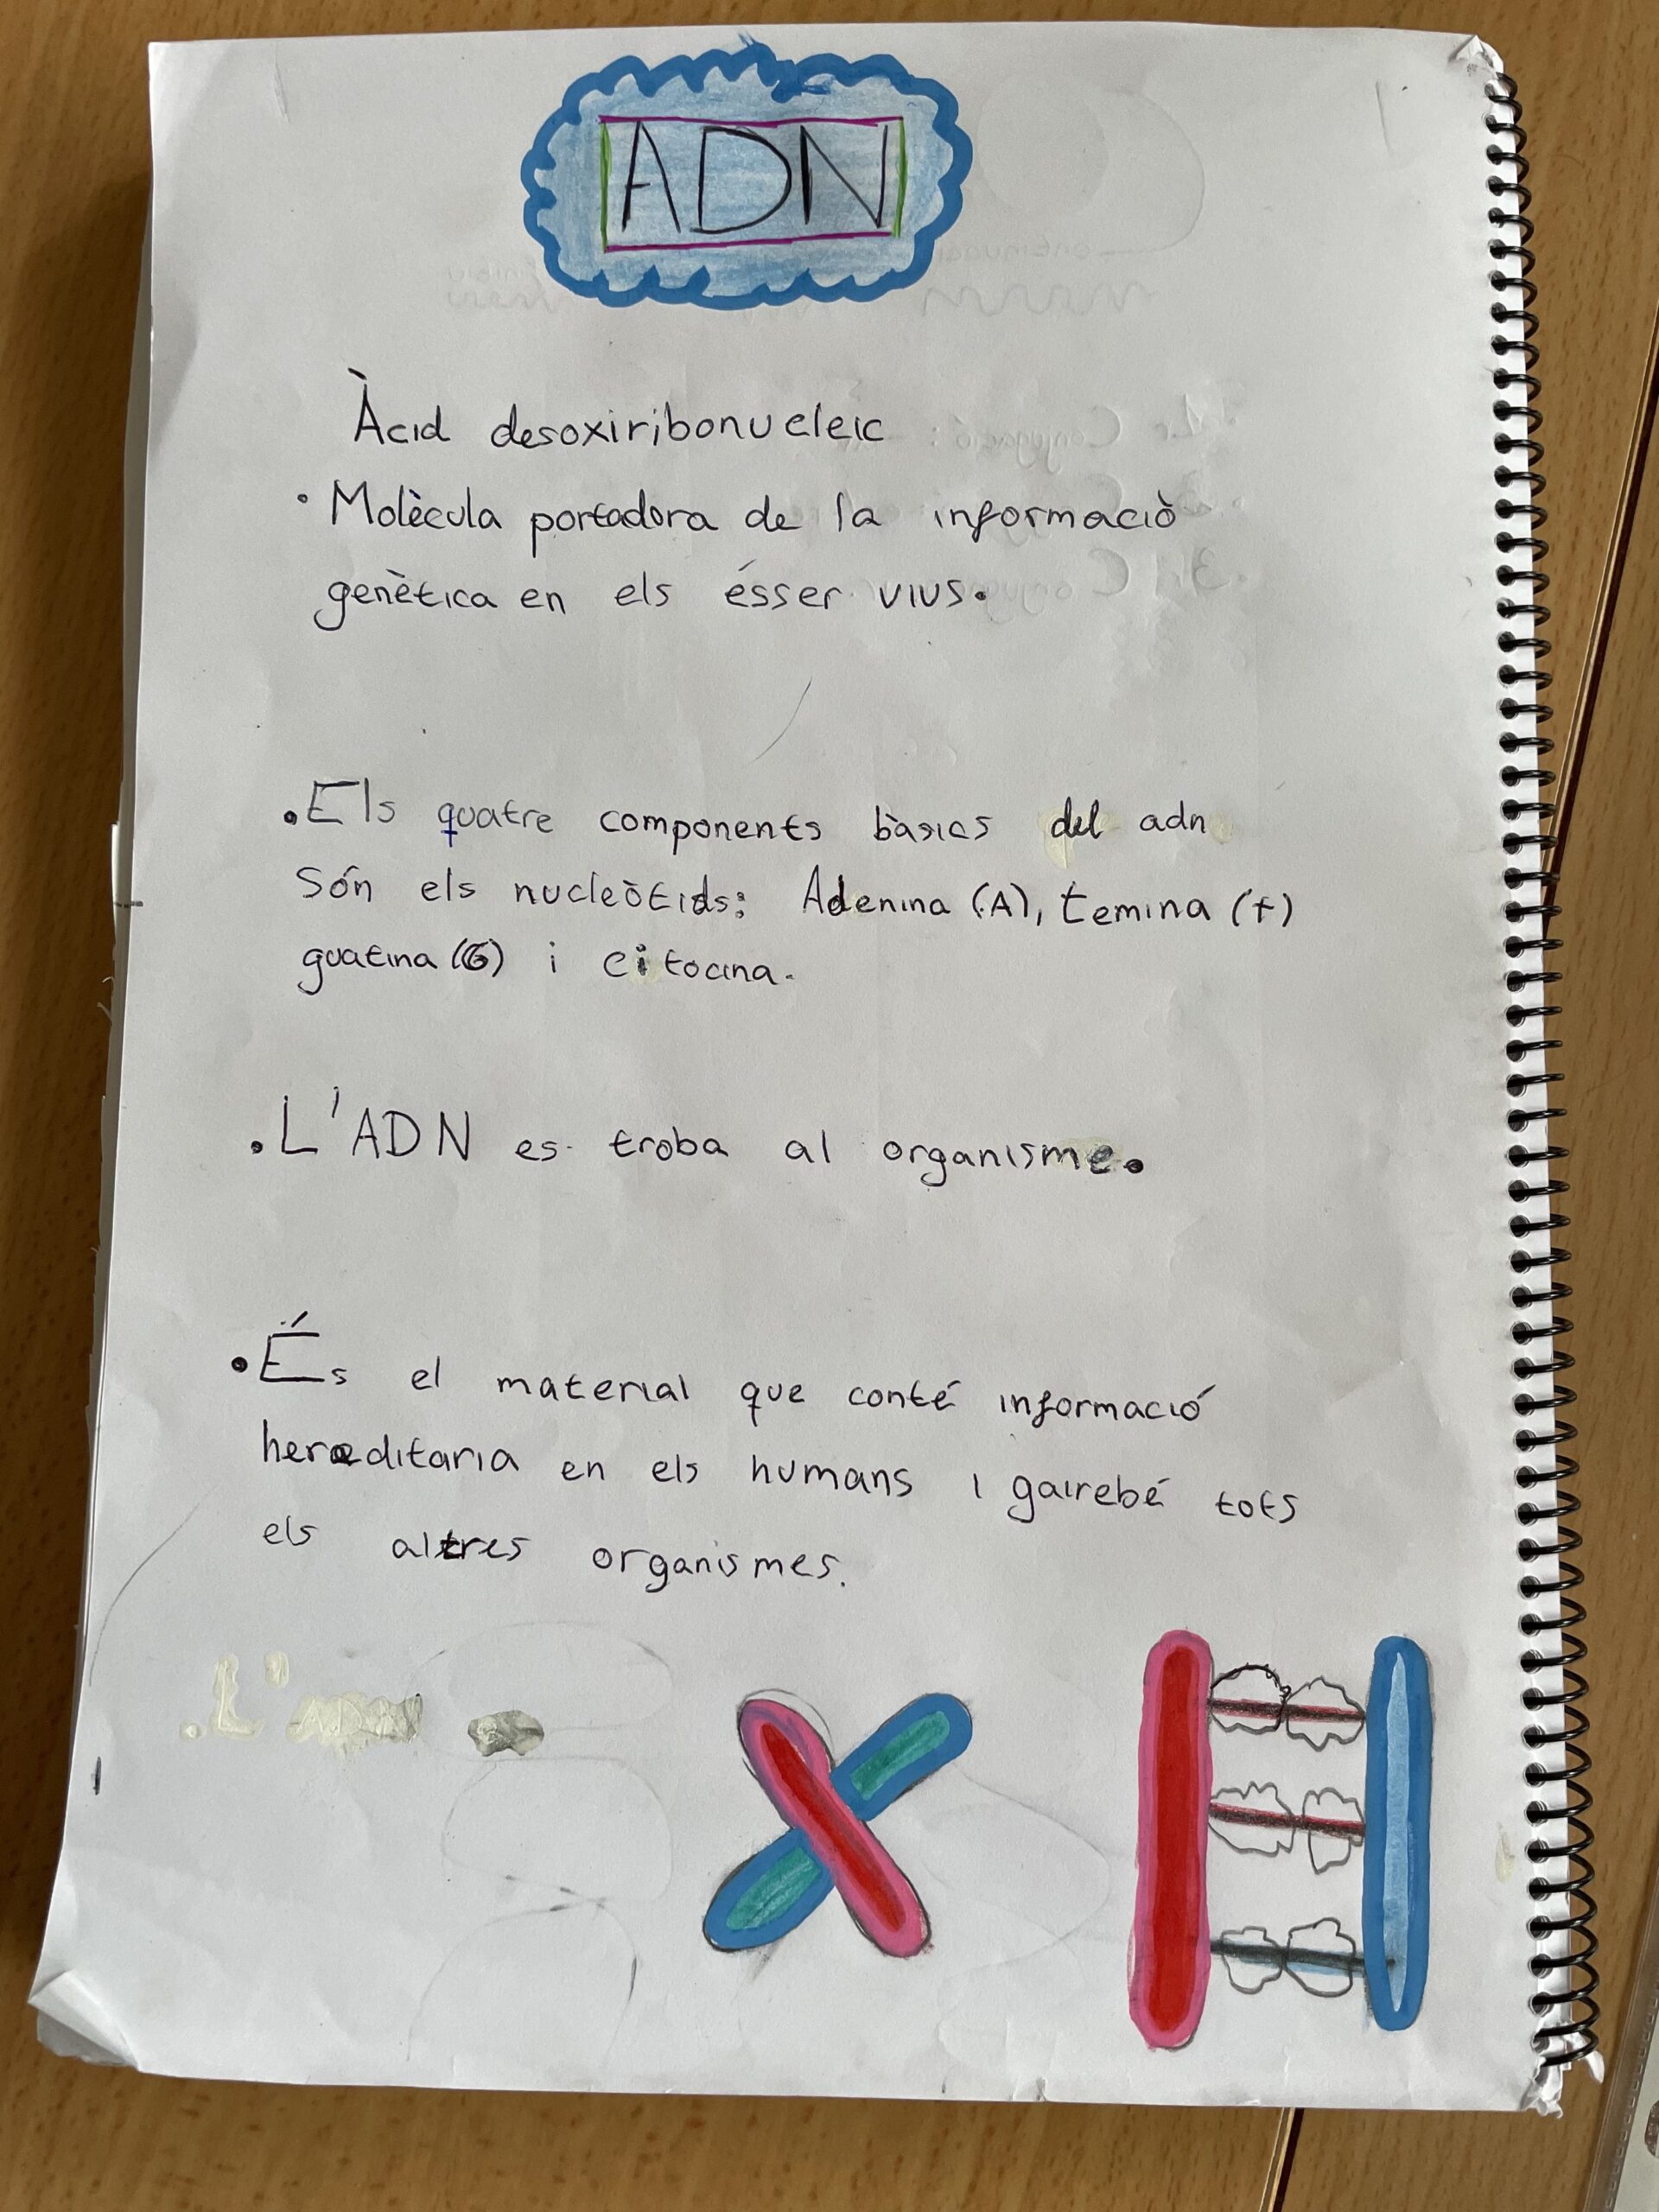 ADN
Àcid desoxiribonucleic
• Molècula portadora de la informaciò
genètica en els ésser vius.
. Els quatre components bàsics del adn
Són els nucleòtids: Adenina (A), temina (t)
guatina (G) i citocina.
. L'ADN es troba al organisme.
• És el material que conté informació
hereditaria en els humans i gairebé tots
els altres organismes.
. L'